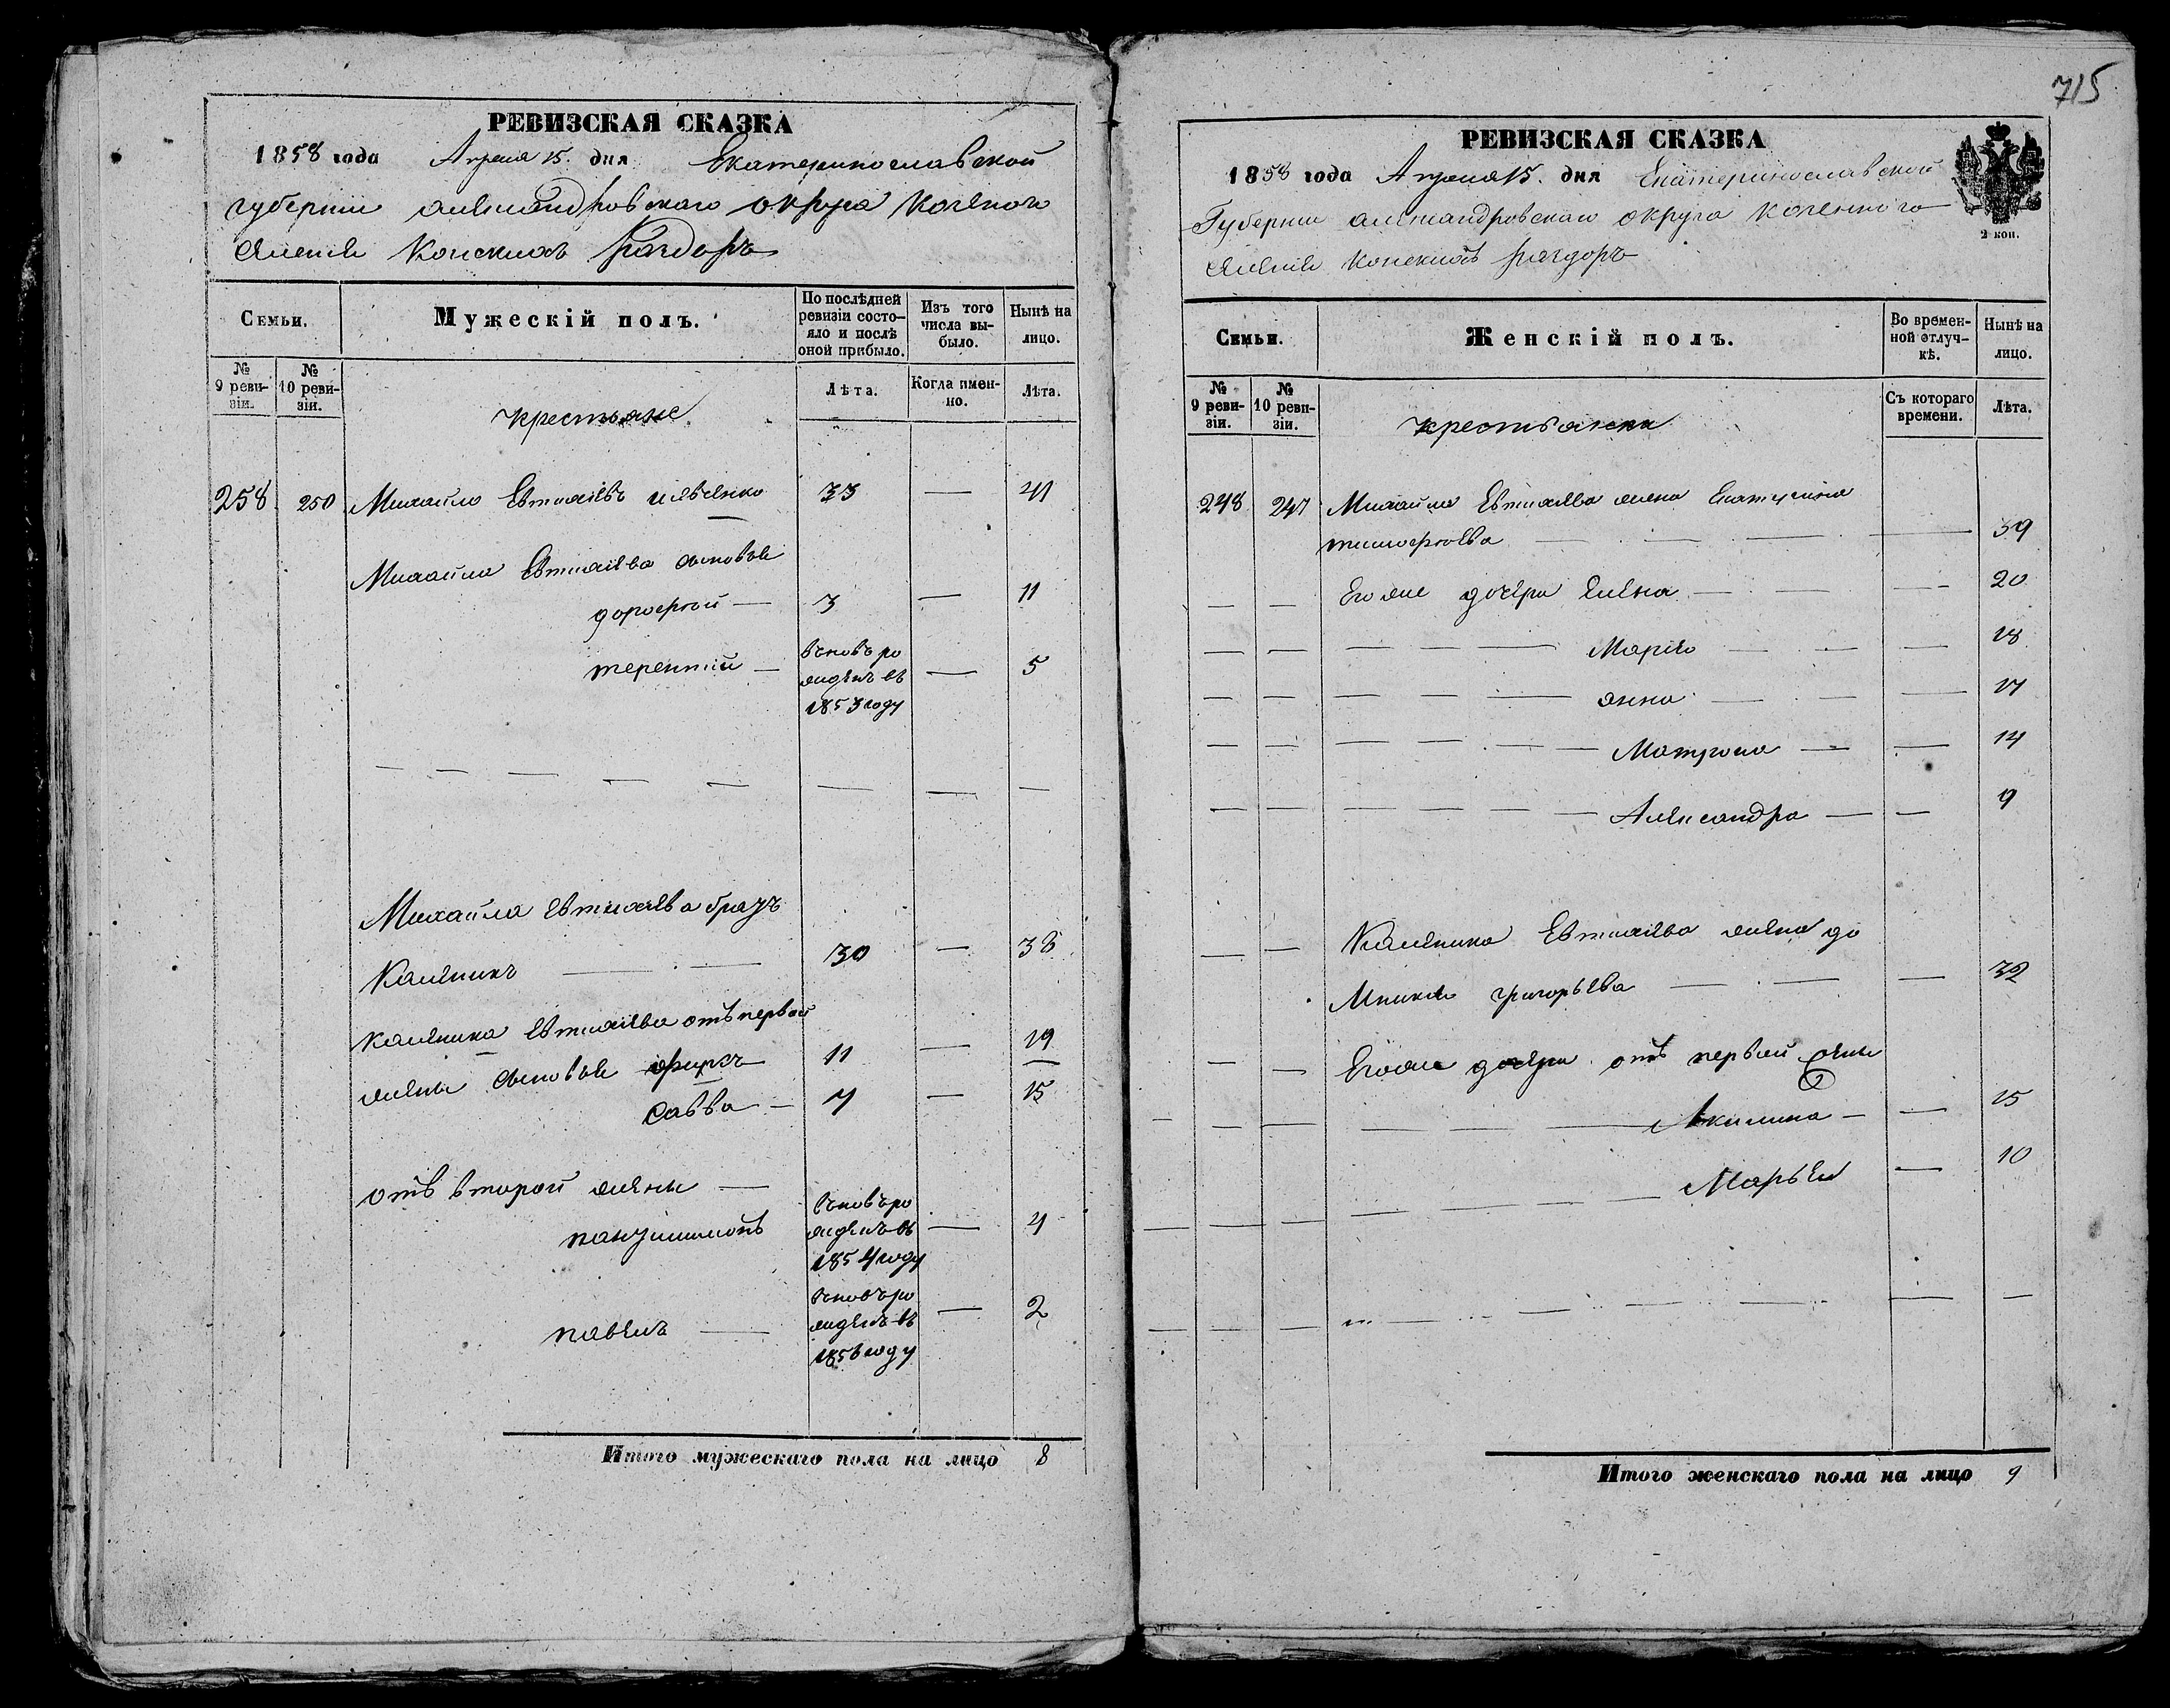 715
РЕВИЗСКАЯ СКАЗКА
1858 года Апреля 15. дня Екатеринославской
губернии Александровскаго округа
Конскихъ Раздоръ
Семьи.
Мужескій полъ.
По послѣдней ревизіи состояло и послѣ оной прибыло.
Изъ того числа выбыло.
Нынѣ на лицо.
№ 9 ревизіи.
№ 10 ревизіи.
крестьяне
Лѣта.
Когда именно.
Лѣта.
258 250 Михайло Евтихіевъ 33 — 41
Михайла Евтихіева сыновья
дорофтей — 3 — 11
терентій — вновь рожденъ въ 1853 году — 5
Михайла Евтихіева братъ
Каленикъ — 30 — 38
Каленика Евтихіева отъ первой
жены сыновья фирсъ 11 — 19
савва — 7 — 15
отъ второй жены —
вновь рожденъ въ 1854 году — 4
павелъ — вновь рожденъ въ 1856 году — 2
Итого мужескаго пола на лицо 8
РЕВИЗСКАЯ СКАЗКА
1858 года Апреля 15. дня Екатеринославской
Губернии Александровскаго округа
Конскихъ Раздоръ
2 коп.
Семьи.
Женскій полъ.
Во временной отлучкѣ.
Нынѣ на лицо.
№ 9 ревизіи.
№ 10 ревизіи.
крестьянки
Съ котораго времени.
Лѣта.
248 247 Михайла Евтихіева жена Екатерина
тимофеева — 39
Его же дочери Елена — 20
Марія — 18
анна — 17
Матрона — 14
Александра — 9
Каленика Евтихіева жена до
мникія григорьева — 32
Его же дочери отъ первой жены
Акилина — 15
Марья — 10
Итого женскаго пола на лицо 9